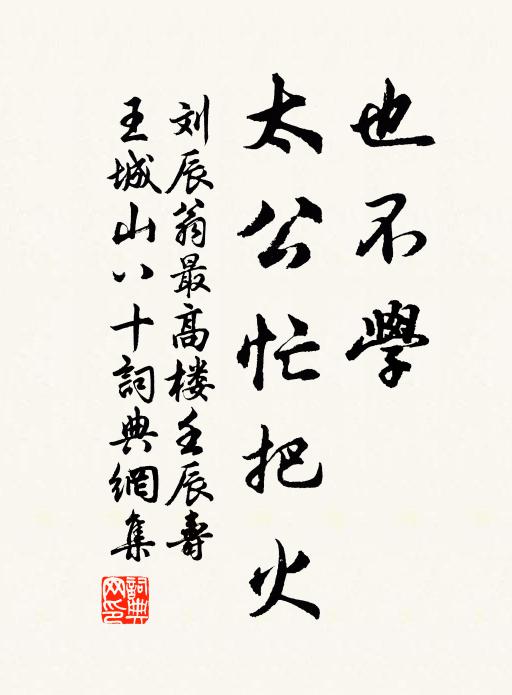 也不學
太公忙把火
刘辰翁最高楼壬辰壽
王城山八十詞典網集
詞典網印